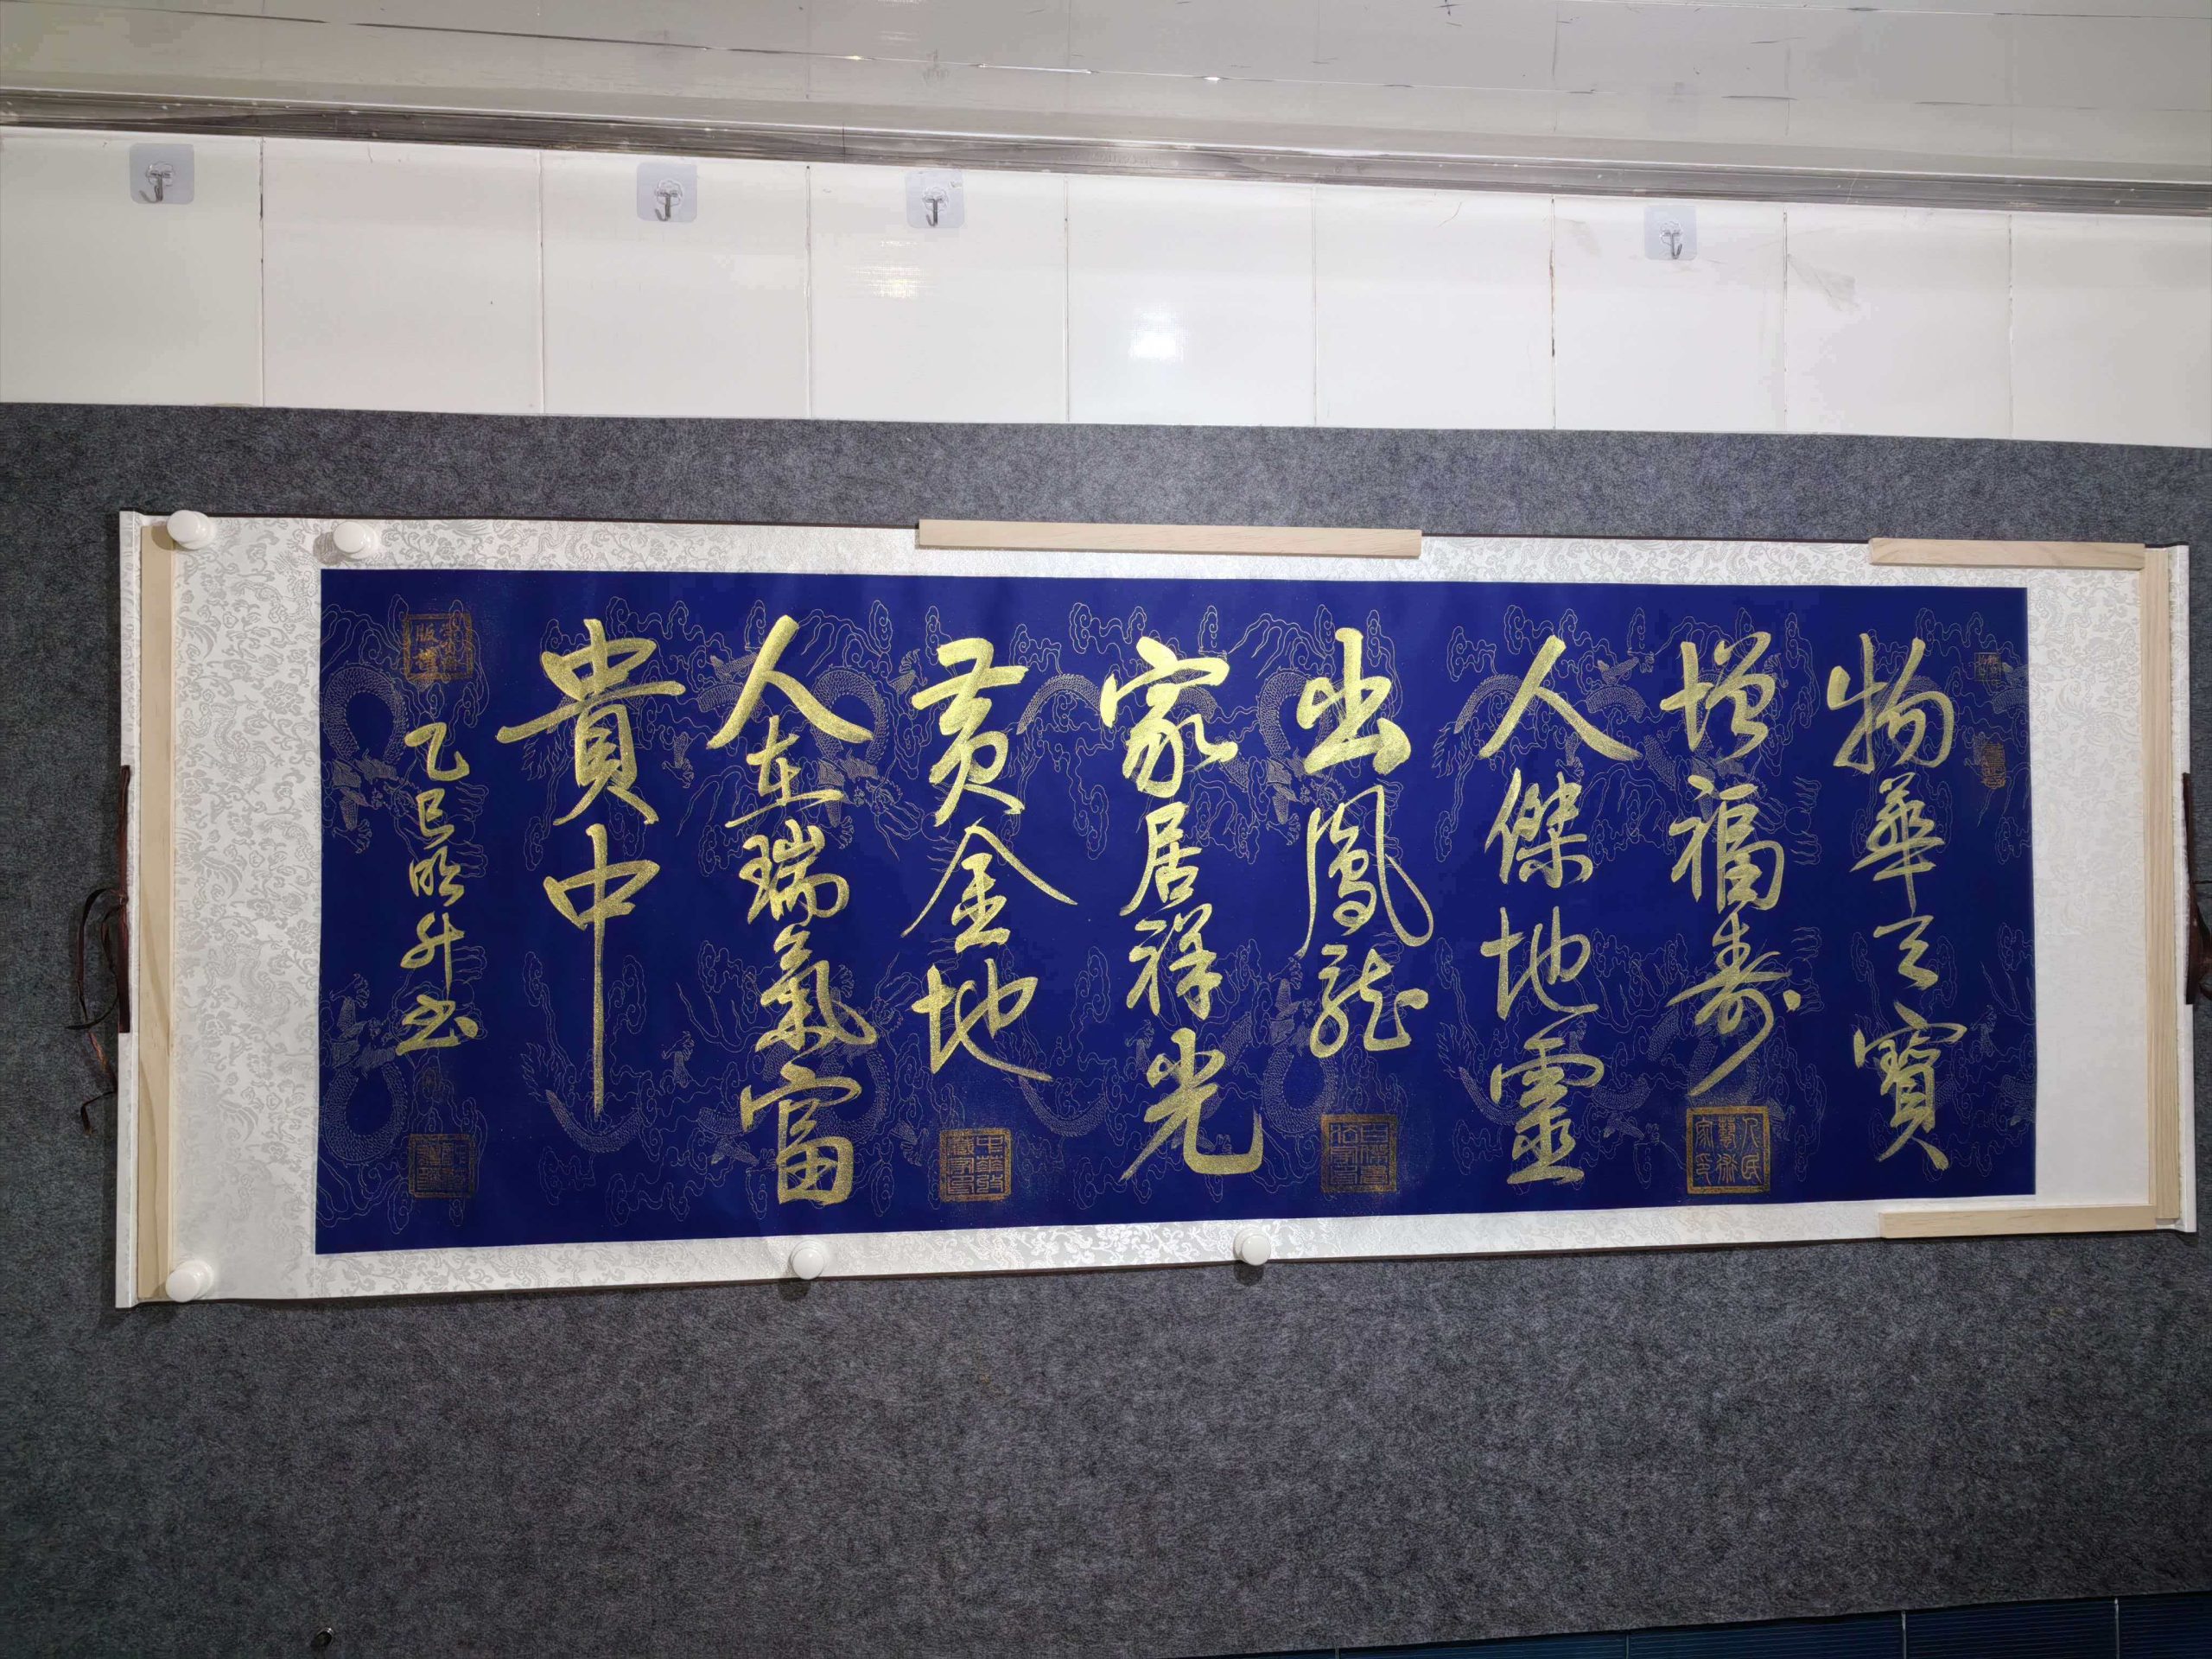 物華天寶
增福壽
人傑地靈
出鳳龍
家居祥光
黃金地
人在瑞氣富
貴中
乙巳明升书
人民藝術家印